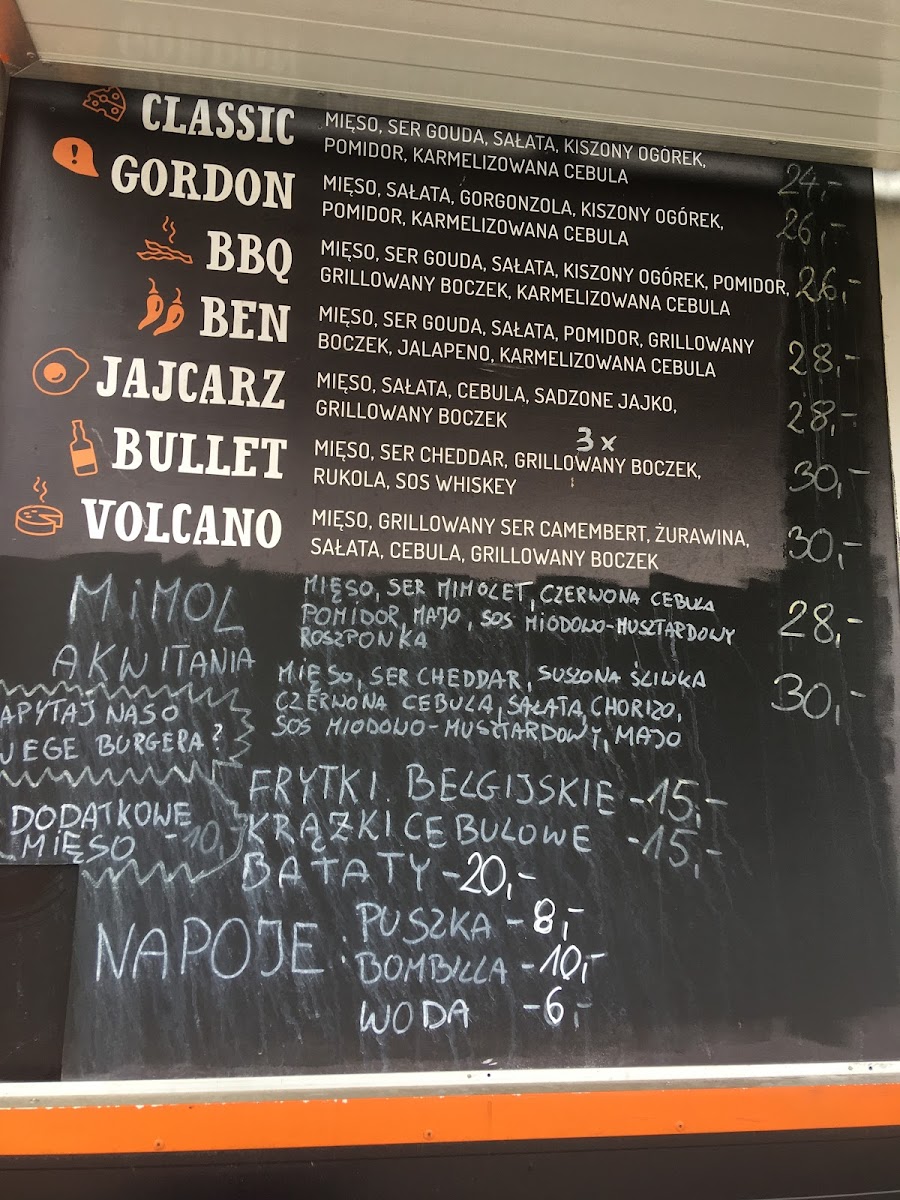 CLASSIC
MIĘSO, SER GOUDA, SAŁATA, KISZONY OGÓREK,
POMIDOR, KARMELIZOWANA CEBULA
24,-
GORDON
MIĘSO, SAŁATA, GORGONZOLA, KISZONY OGÓREK,
POMIDOR, KARMELIZOWANA CEBULA
26,-
BBQ
MIĘSO, SER GOUDA, SAŁATA, KISZONY OGÓREK, POMIDOR,
GRILLOWANY BOCZEK, KARMELIZOWANA CEBULA
26,-
BEN
MIĘSO, SER GOUDA, SAŁATA, POMIDOR, GRILLOWANY
BOCZEK, JALAPENO, KARMELIZOWANA CEBULA
28,-
JAJCARZ
MIĘSO, SAŁATA, CEBULA, SADZONE JAJKO,
GRILLOWANY BOCZEK
28,-
BULLET
3x
MIĘSO, SER CHEDDAR, GRILLOWANY BOCZEK,
RUKOLA, SOS WHISKEY
30,-
VOLCANO
MIĘSO, GRILLOWANY SER CAMEMBERT, ŻURAWINA,
SAŁATA, CEBULA, GRILLOWANY BOCZEK
30,-
MiMOL
MIĘSO, SER MIMOLET, CZERWONA CEBULA
POMIDOR, MAJO, SOS MIODOWO-MUSZTARDOWY
ROSZPONKA
28,-
AKWITANIA
MIĘSO, SER CHEDDAR, SUSZONA ŚLIWKA
CZERWONA CEBULA, SAŁATA, CHORIZO,
SOS MIODOWO-MUSZTARDOWY, MAJO
30,-
APYTAJ NAS O
WEGE BURGERA?
DODATKOWE
MIĘSO -10,-
FRYTKI BELGIJSKIE -15,-
KRĄŻKI CEBULOWE -15,-
BATATY -20,-
NAPOJE:
PUSZKA -8,-
BOMBILLA -10,-
WODA -6,-